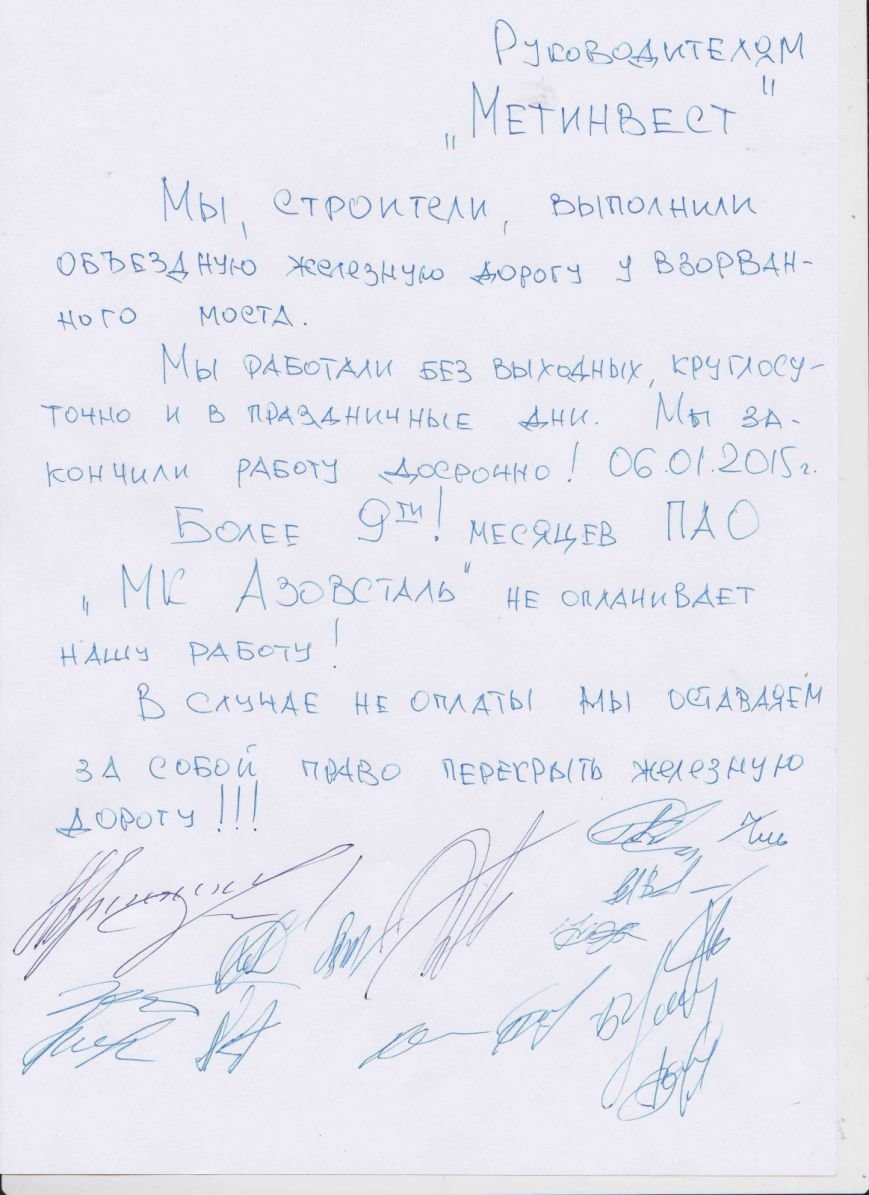 Руководителям
„Метинвест"
Мы, строители, выполнили
объездную железную дорогу у взорван-
ного моста.
Мы работали без выходных, круглосу-
точно и в праздничные дни. Мы за-
кончили работу досрочно! 06.01.2015г.
Более 9ти! месяцев ПАО
„МК Азовсталь" не оплачивает
нашу работу!
В случае не оплаты мы оставляем
за собой право перекрыть железную
дорогу!!!